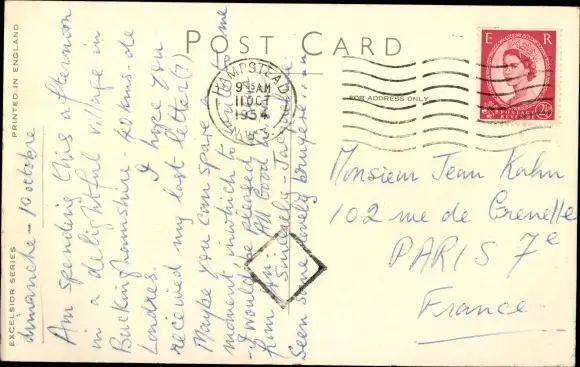 POST CARD
PRINTED IN ENGLAND
EXCELSIOR SERIES
FOR ADDRESS ONLY
HAMPSTEAD
9 15 AM
11 OCT
1954
N.W.3.
E R
POSTAGE
REVENUE
2½
dimanche - 10 octobre
Am spending this afternoon
in a delightful village in
Buckinghamshire - 40 kms. de
Londres. I hope you
received my last letter(?)
Maybe you can spare a
moment, in which to me
- I would be pleased to
from you. All Good
Sincerely - Jacqueline
Seen some lovely bruyère
Monsieur Jean Kahn
102 rue de Grenelle
PARIS 7e
France